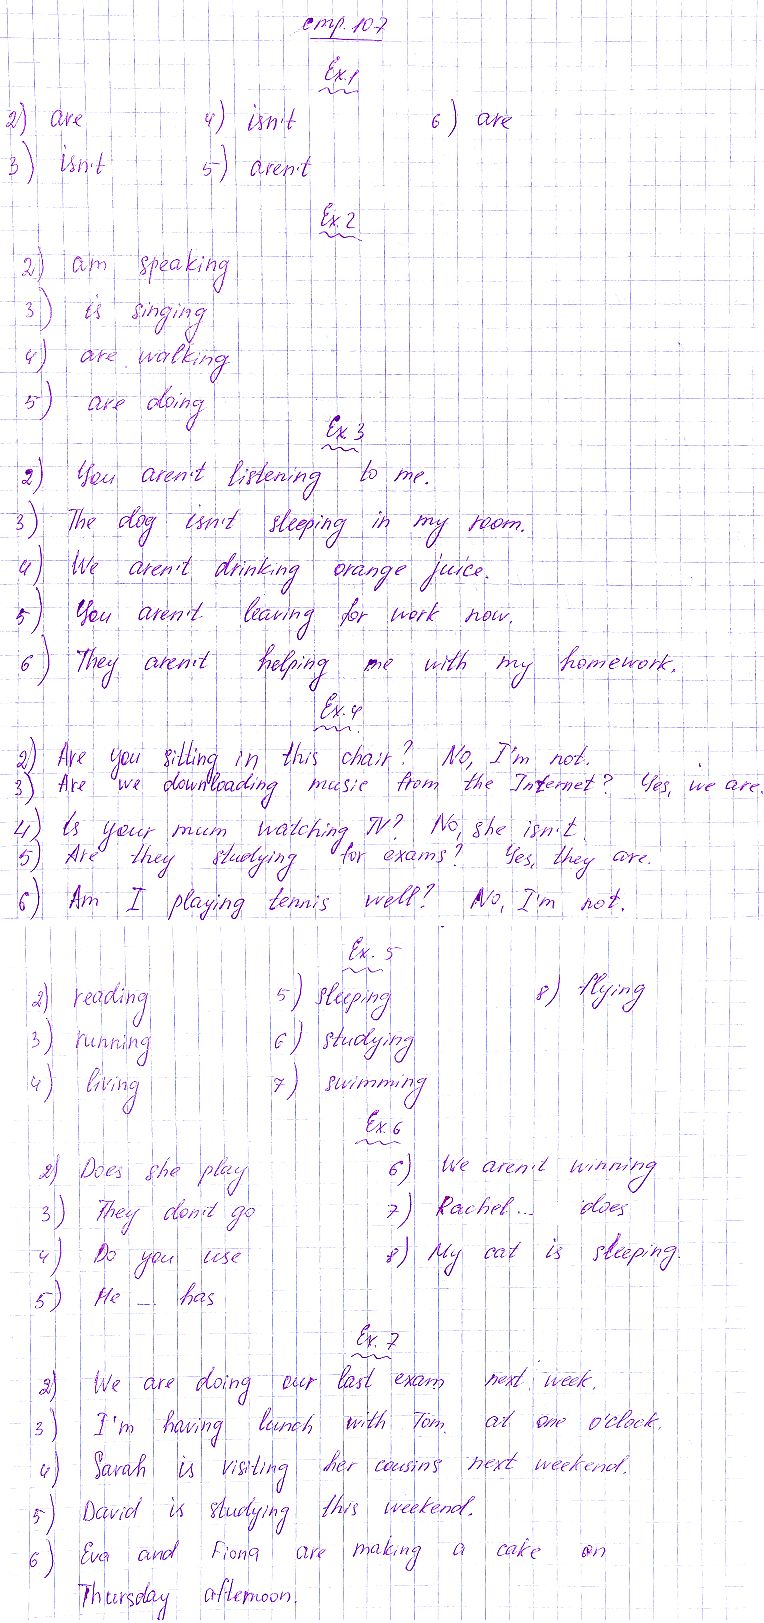 стр. 107
Ex.1
2) are 4) isn't 6) are
3) isn't 5) aren't
Ex.2
2) am speaking
3) is singing
4) are walking
5) are doing
Ex.3
2) You aren't listening to me.
3) The dog isn't sleeping in my room.
4) We aren't drinking orange juice.
5) You aren't leaving for work now.
6) They aren't helping me with my homework.
Ex.4
2) Are you sitting in this chair? No, I'm not.
3) Are we downloading music from the Internet? Yes, we are.
4) Is your mum watching TV? No, she isn't.
5) Are they studying for exams? Yes, they are.
6) Am I playing tennis well? No, I'm not.
Ex. 5
2) reading 5) sleeping 8) flying
3) running 6) studying
4) living 7) swimming
Ex.6
2) Does she play 6) We aren't winning
3) They don't go 7) Rachel... does
4) Do you use 8) My cat is sleeping.
5) He ... has
Ex. 7
2) We are doing our last exam next week.
3) I'm having lunch with Tom at one o'clock.
4) Sarah is visiting her cousins next weekend.
5) David is studying this weekend.
6) Eva and Fiona are making a cake on
Thursday afternoon.